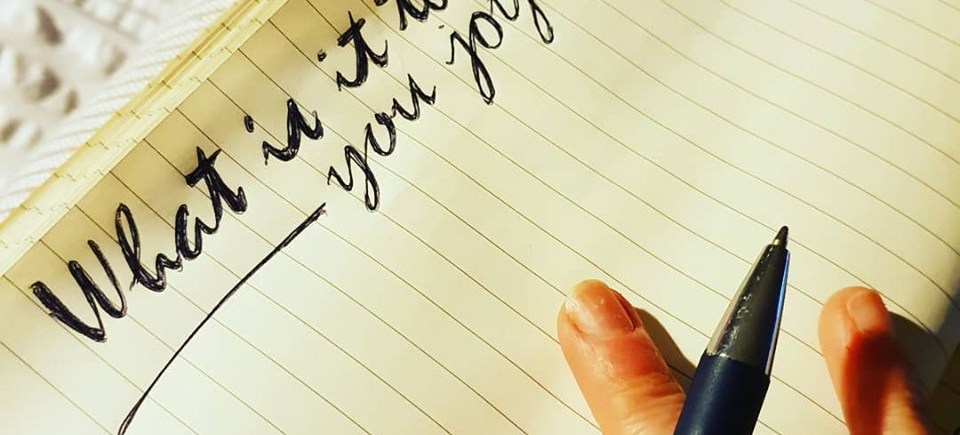 What is it
you joy